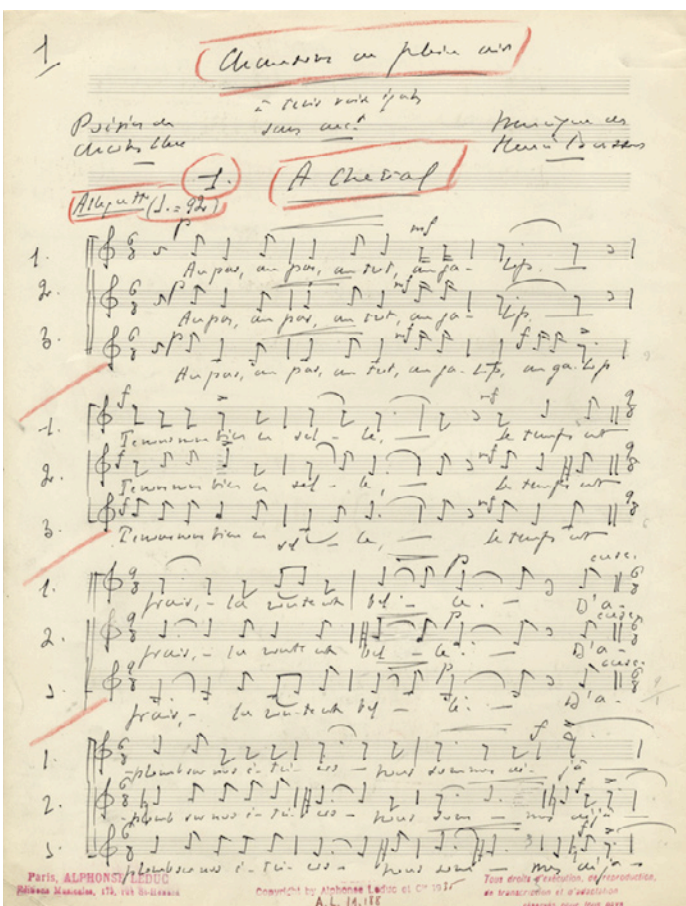 1
Chansons en plein air
à trois voix égales
sans acc.t
Poésies de
Musique de
Henri
1. A Cheval
Allegretto (♩. = 92)
p mf
1. Au pas, au pas, au trot, au ga - lop. —
2. Au pas, au pas, au trot, au ga - lop. —
3. Au pas, au pas, au trot, au ga - lop, au ga - lop
f mf
1. Tenons nous bien en sel - le, — le temps est
2. Tenons nous bien en sel - le, — le temps est
3. Tenons nous bien en sel - le, — le temps est
p
1. frais, - la route est bel - le. — D'a -
2. frais, - la route est bel - le. — D'a -
3. frais, - la route est bel - le. — D'a -
f
1. - plomb sur nos é - tri - ers - nous sommes dé - jà —
2. - plomb sur nos é - tri - ers - nous som - mes déjà -
3. - plomb sur nos é - tri - ers - nous som - mes déjà -
Paris, ALPHONSE LEDUC
Éditions Musicales, 175, rue St-Honoré
Copyright by Alphonse Leduc et Cie 19
A.L. 19.188
Tous droits d'exécution, de reproduction,
de transcription et d'adaptation
réservés pour tous pays